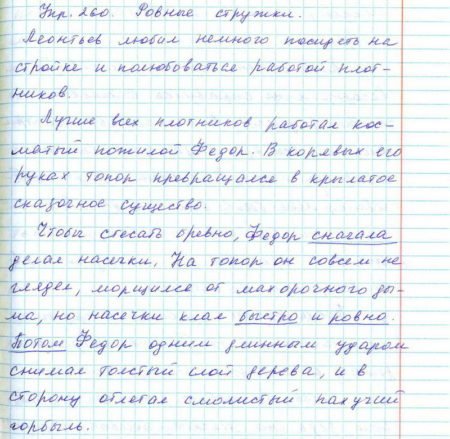 Упр. 260. Ровные стружки.
Леонтьев любил немного посидеть на
стройке и полюбоваться работой плот-
ников.
Лучше всех плотников работал кос-
матый пожилой Федор. В корявых его
руках топор превращался в крылатое
сказочное существо.
Чтобы стесать бревно, Федор сначала
делал насечки. На топор он совсем не
глядел, морщился от махорочного ды-
ма, но насечки клал быстро и ровно.
Потом Федор одним длинным ударом
снимал толстый слой дерева, и в
сторону отлетал смолистый пахучий
горбыль.